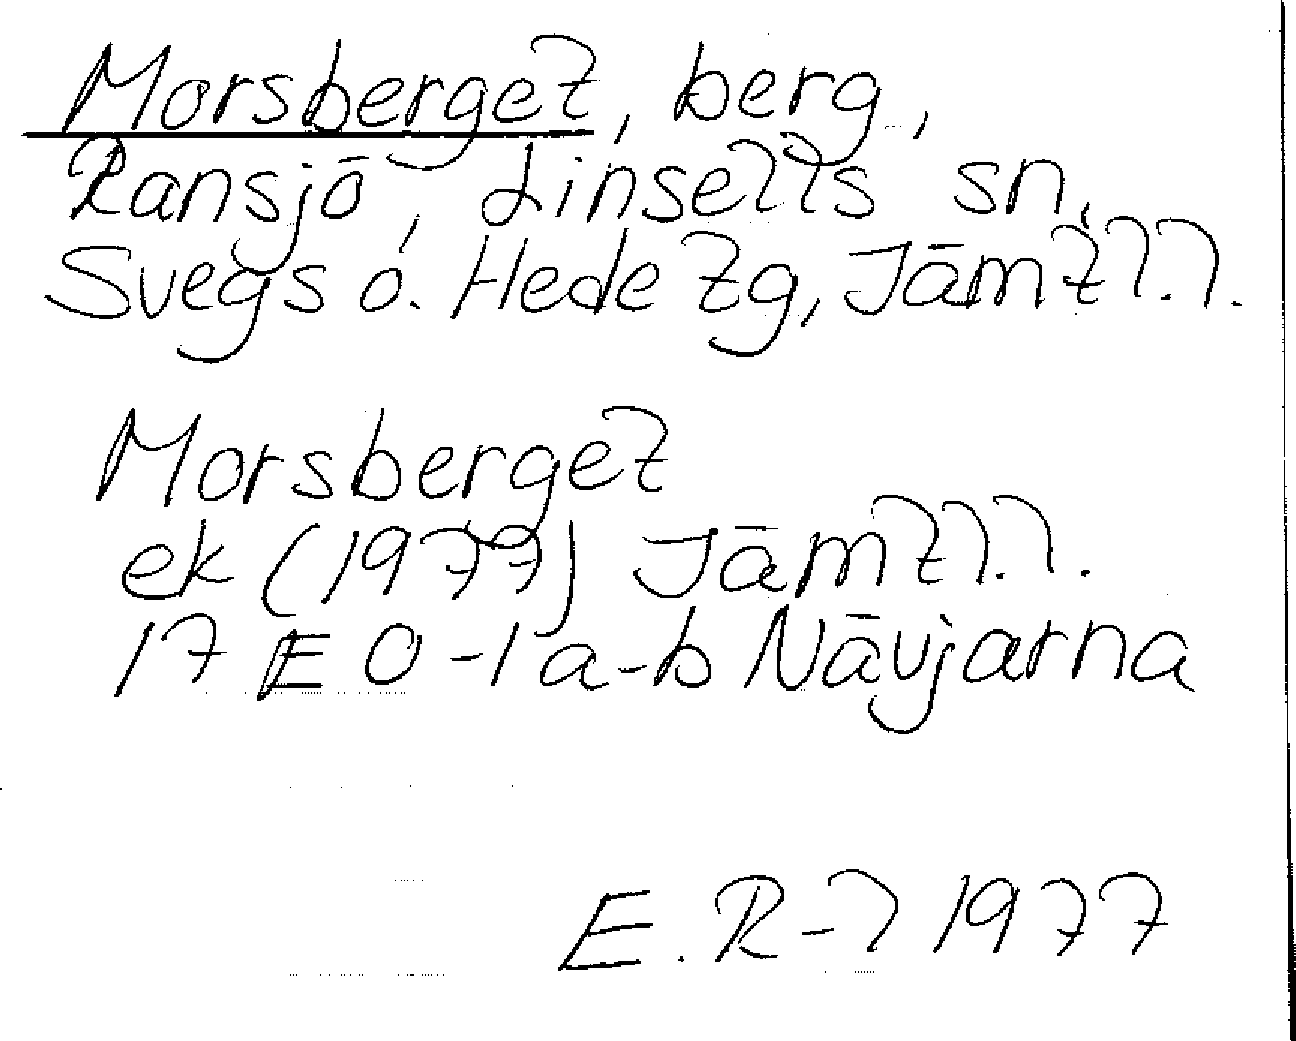 Morsberget, berg,
Ransjö, Linsells sn,
Svegs o. Hede tg, Jämtl.l.
Morsberget
ek (1977) Jämtl.l.
17 E 0-1 a-b Nävjarna
E. R-l 1977